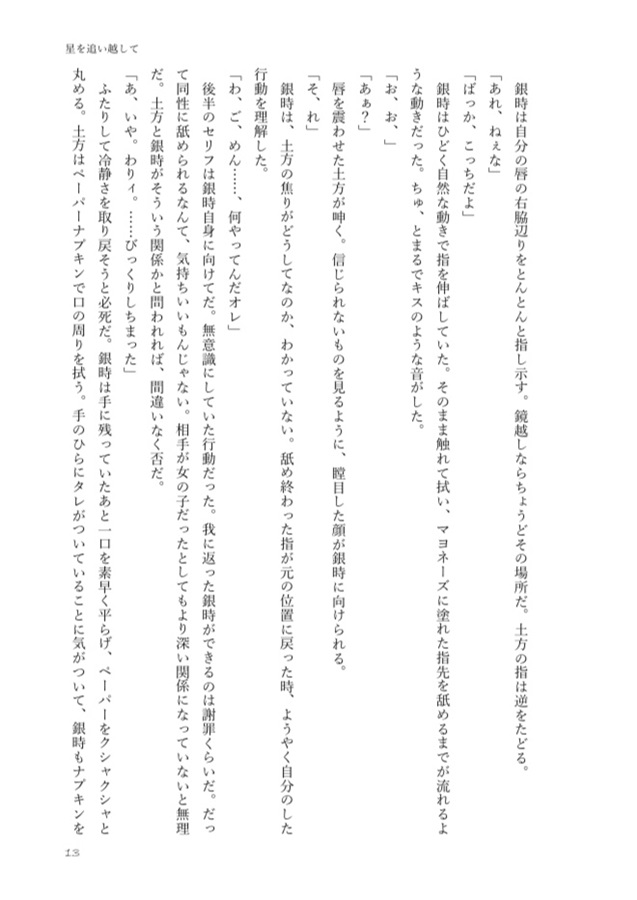 星を追い越して
　銀時は自分の唇の右脇辺りをとんとんと指し示す。鏡越しならちょうどその場所だ。土方の指は逆をたどる。
「あれ、ねぇな」
「ばっか、こっちだよ」
　銀時はひどく自然な動きで指を伸ばしていた。そのまま触れて拭い、マヨネーズに塗れた指先を舐めるまでが流れるよ
うな動きだった。ちゅ、とまるでキスのような音がした。
「お、お、」
「あぁ？」
　唇を震わせた土方が呻く。信じられないものを見るように、瞠目した顔が銀時に向けられる。
「そ、れ」
　銀時は、土方の焦りがどうしてなのか、わかっていない。舐め終わった指が元の位置に戻った時、ようやく自分のした
行動を理解した。
「わ、ご、めん……、何やってんだオレ」
　後半のセリフは銀時自身に向けてだ。無意識にしていた行動だった。我に返った銀時ができるのは謝罪くらいだ。だっ
て同性に舐められるなんて、気持ちいいもんじゃない。相手が女の子だったとしてもより深い関係になっていないと無理
だ。土方と銀時がそういう関係かと問われれば、間違いなく否だ。
「あ、いや。わりィ。……びっくりしちまった」
　ふたりして冷静さを取り戻そうと必死だ。銀時は手に残っていたあと一口を素早く平らげ、ペーパーをクシャクシャと
丸める。土方はペーパーナプキンで口の周りを拭う。手のひらにタレがついていることに気がついて、銀時もナプキンを
13